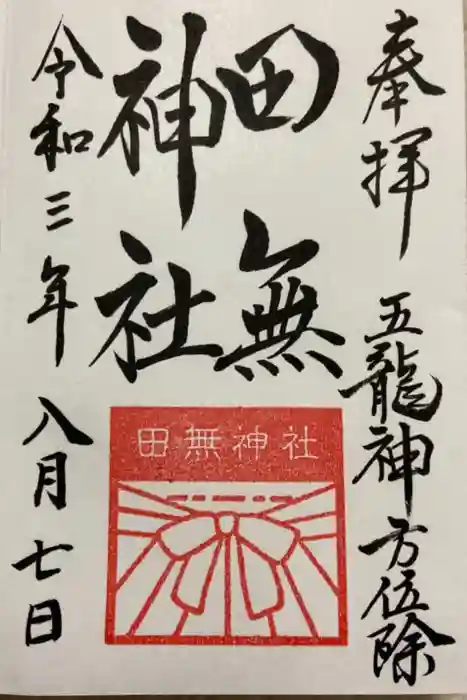 奉拝
五龍神方位除
田無
神社
令和三年八月七日
田無神社